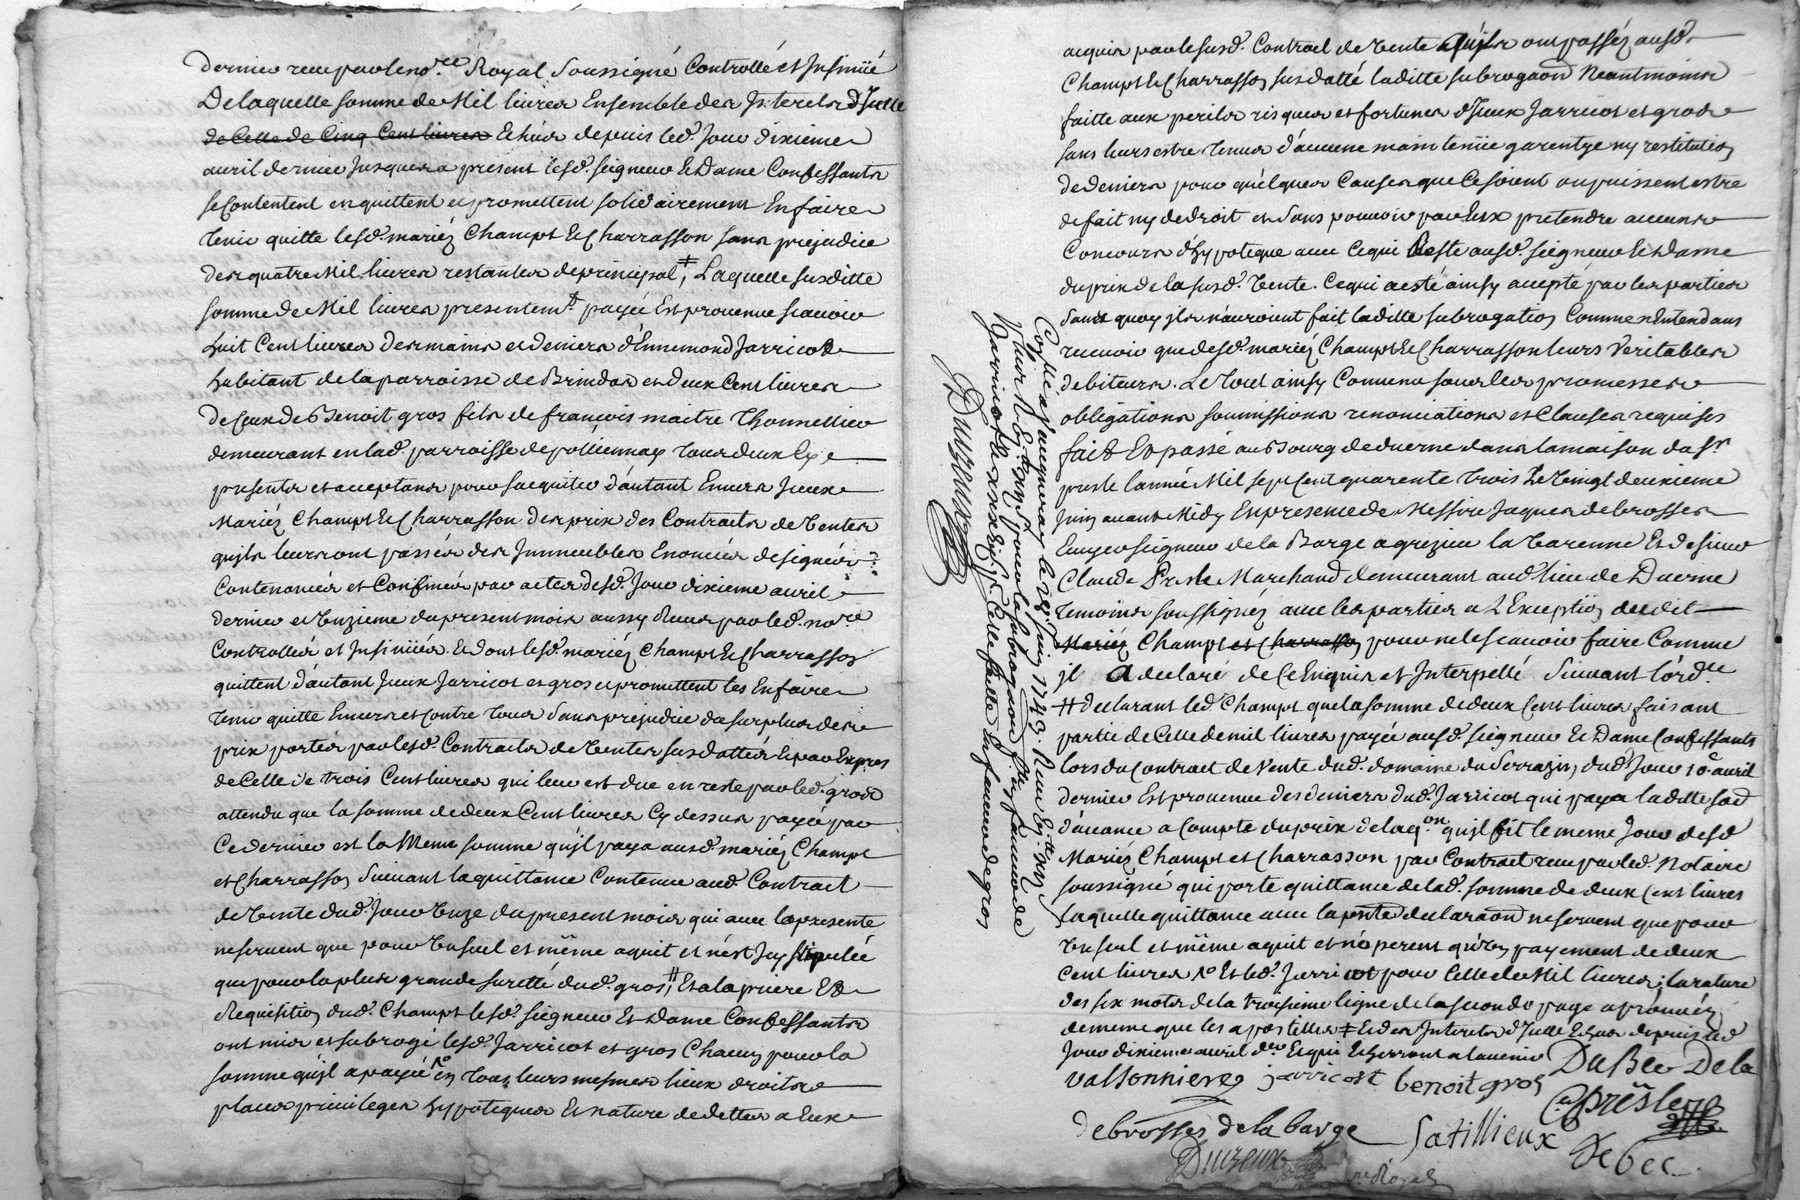 dernier receu par le no.re Royal Soussigné Controllé et Insinüé
De laquelle somme de Mil livres Ensemble des Interets d'Icelle
de Celle de Cinq Cent livres Echus depuis led. Jour dixieme
avril dernier Jusques a present lesd. seigneur Et Dame Confessants
se Contentent en quittent et promettent solidairement En faire
tenir quitte lesd. mariéz Champt Et Charrasson sans prejudice
des quatre Mil livres restantes de principal, # Laquelle susditte
somme de Mil livres presentem.t payée Est provenue scavoir
huit Cent livres des mains et deniers d'Ennemond Jarricot
habitant de la parroisse de Brindas et deux Cent livres
de Ceux de Benoit gros fils de françois maitre thonnellier
demeurant en lad. parroisse de pollionnay tous deux Icy
presents et acceptans pour s'acquitter d'autant Envers Iceux
Mariéz Champt Et Charrasson des prix des Contracts de ventes
qu'ils leurs ont passés des Immeubles Enoncés designés
Contenancés et Confinés par actes desd. Jour dixieme avril
dernier et unzieme du present mois aussy Receus par led. no.re
Controllés et Insinüés. Et dont lesd. mariéz Champt Et Charrasson
quittent d'autant Iceux Jarricot et gros et promettent les En faire
tenir quitte Envers et contre tous sans prejudice du surplus des
prix portés par lesd. Contracts de ventes susdattés Et par Expres
de Celle de trois Cent livres qui leur est due en reste par led. gros
attendu que la somme de deux Cent livres Cy dessus payée par
Ce dernier est la Meme somme qu'il paya ausd. mariéz Champt
et Charrasson Suivant la quittance Contenue aud. Contract
de vente dud. Jour unze du present mois qui avec la presente
ne servent que pour un seul et même aquit et n'est Icy stipulée
que pour la plus grande sureté dud. gros, # Et a la priere Et
Requisition dud. Champt lesd. seigneur Et Dame Confessants
ont mis et subrogé lesd. Jarricot et gros Chacun pour la
somme qu'il a payée en tous leurs mesmes lieux droits
places privileges hypoteques Et nature de dettes a Eux
acquis par le susd. Contract de vente qu'ils ont passéz ausd.
Champt Et Charrasson susdatté laditte subrogaon Neantmoins
faitte aux perils risques et fortunes d'Iceux Jarricot et gros
sans leurs estre tenus d'aucune maintenüe garentye ny restitution
de deniers pour quélques Causes que Ce soient ou puissent estre
de fait ny de droit et sans pouvoir par Eux pretendre aucuns
Concours d'hypoteque avec Ce qui Reste ausd. seigneur Et Dame
du prix de la susd. Vente. Ce qui a esté ainsy accepté par les parties
Sans quoy Ils n'auroient fait laditte subrogation Comme n'Entendans
recevoir que desd. mariéz Champt Et Charrasson leurs Veritables
debiteurs. Le tout ainsy Convenu sous les promesses
obligations soumissions renonciations et Clauses requises
fait Et passé au Bourg de duerne dans la maison du Sr.
presle l'année Mil sept Cent quarente trois Le Vingt deuxieme
Juin avant Midy En presence de Messire Jaques debrosses
Ecuyer seigneur de la Barge la varenne Et de sieur
Claude Presle Marchand demeurant aud. lieu de Duerne
temoins soussignéz avec les parties a L'Exception dudit
Mariéz Champt et Charrasson pour ne le scavoir faire Comme
il A declaré de Ce Enquis et Interpellé Suivant l'ord.ce
# declarant led. Champt que la somme de deux Cent livres faisant
partie de Celle de mil livres payée ausd. seigneur Et Dame Confessants
lors du Contract de Vente dud. domaine du Serrazin, dud. Jour 10e avril
dernier Est provenue des deniers dud. Jarricot qui paya laditte
d'avance a Compte du prix de l'aq.on qu'il fit le meme Jour desd.
Mariéz Champt et Charrasson par Contract receu par led. Notaire
soussigné qui porte quittance de lad. somme de deux Cent livres
laquelle quittance avec la pnte declaraon ne servent que pour
un seul et même aquit et n'operent qu'un payement de deux
Cent livres Et led. Jarricot pour Celle de Mil livres; la rature
des six mots de la troisieme ligne de la seconde page aprouvéz
de meme que les apostilles # Et des Interets d'Icelle Echus depuis led.
Jour dixieme avril der. Et qui Echerront a l'avenir Du Bec De la
valsonniere jarricot benoit gros
Presle
debrosses de la barge Satillieux
Debec
Duizeux
n.re Royal
Collé a Vaugneray le 29e Juin 1743. Receu
Jarricot
Duizeux